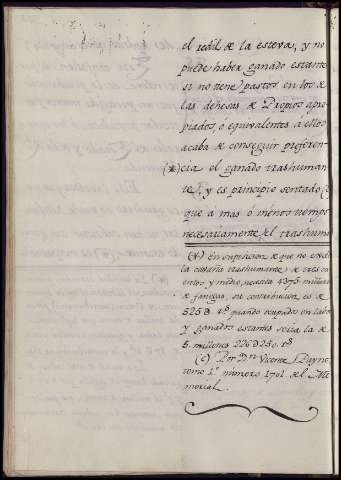 el redil de la esteva, y no
puede haber ganado estante
si no tiene pastos en los de
las dehesas de Propios apro-
piados, ó equivalentes á ellos
acaba de conseguir preferen-
(*) cia el ganado trashuman-
te, y es principio sentado
que a mas ó ménos tiempo
necesariamente, el trashum
(*) En suposicion de que no
la cabaña trashumante, de tres
y medio, necesita 4375
de fanegas, su contribucion es de
525 siendo ocupado en labor
y ganados estantes seria la de
5. millones 226 250. rs
(c) Por Dn Vicente Payno
tomo 1º numero 1701 del Me-
morial.